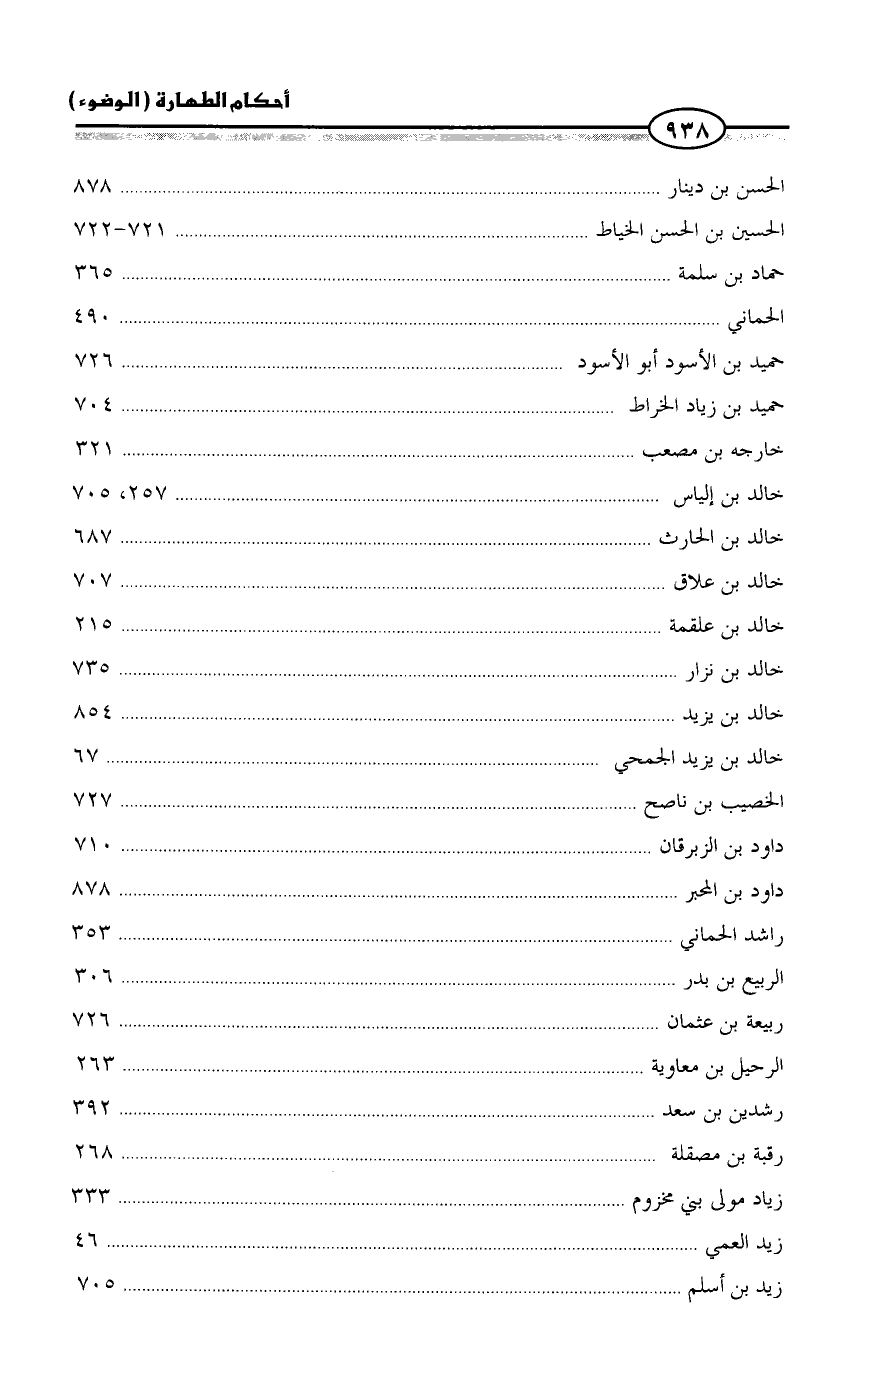 أحكام الطهارة (الوضوء)
٩٣٨
الحسن بن دينار ........ ٨٧٨
الحسين بن الحسن الخياط ........ ٧٢١-٧٢٢
حماد بن سلمة ........ ٣٦٥
الحماني ........ ٤٩٠
حميد بن الأسود أبو الأسود ........ ٧٢٦
حميد بن زياد الخراط ........ ٧٠٤
خارجه بن مصعب ........ ٣٢١
خالد بن إلياس ........ ٢٥٧، ٧٠٥
خالد بن الحارث ........ ٦٨٧
خالد بن علاق ........ ٧٠٧
خالد بن علقمة ........ ٢١٥
خالد بن نزار ........ ٧٣٥
خالد بن يزيد ........ ٨٥٤
خالد بن يزيد الجمحي ........ ٦٧
الخصيب بن ناصح ........ ٧٢٧
داود بن الزبرقان ........ ٧١٠
داود بن المحبر ........ ٨٧٨
راشد الحماني ........ ٣٥٣
الربيع بن بدر ........ ٣٠٦
ربيعة بن عثمان ........ ٧٢٦
الرحيل بن معاوية ........ ٢٦٣
رشدين بن سعد ........ ٣٩٢
رقبة بن مصقلة ........ ٢٦٨
زياد مولى بني مخزوم ........ ٣٣٣
زيد العمي ........ ٤٦
زيد بن أسلم ........ ٧٠٥